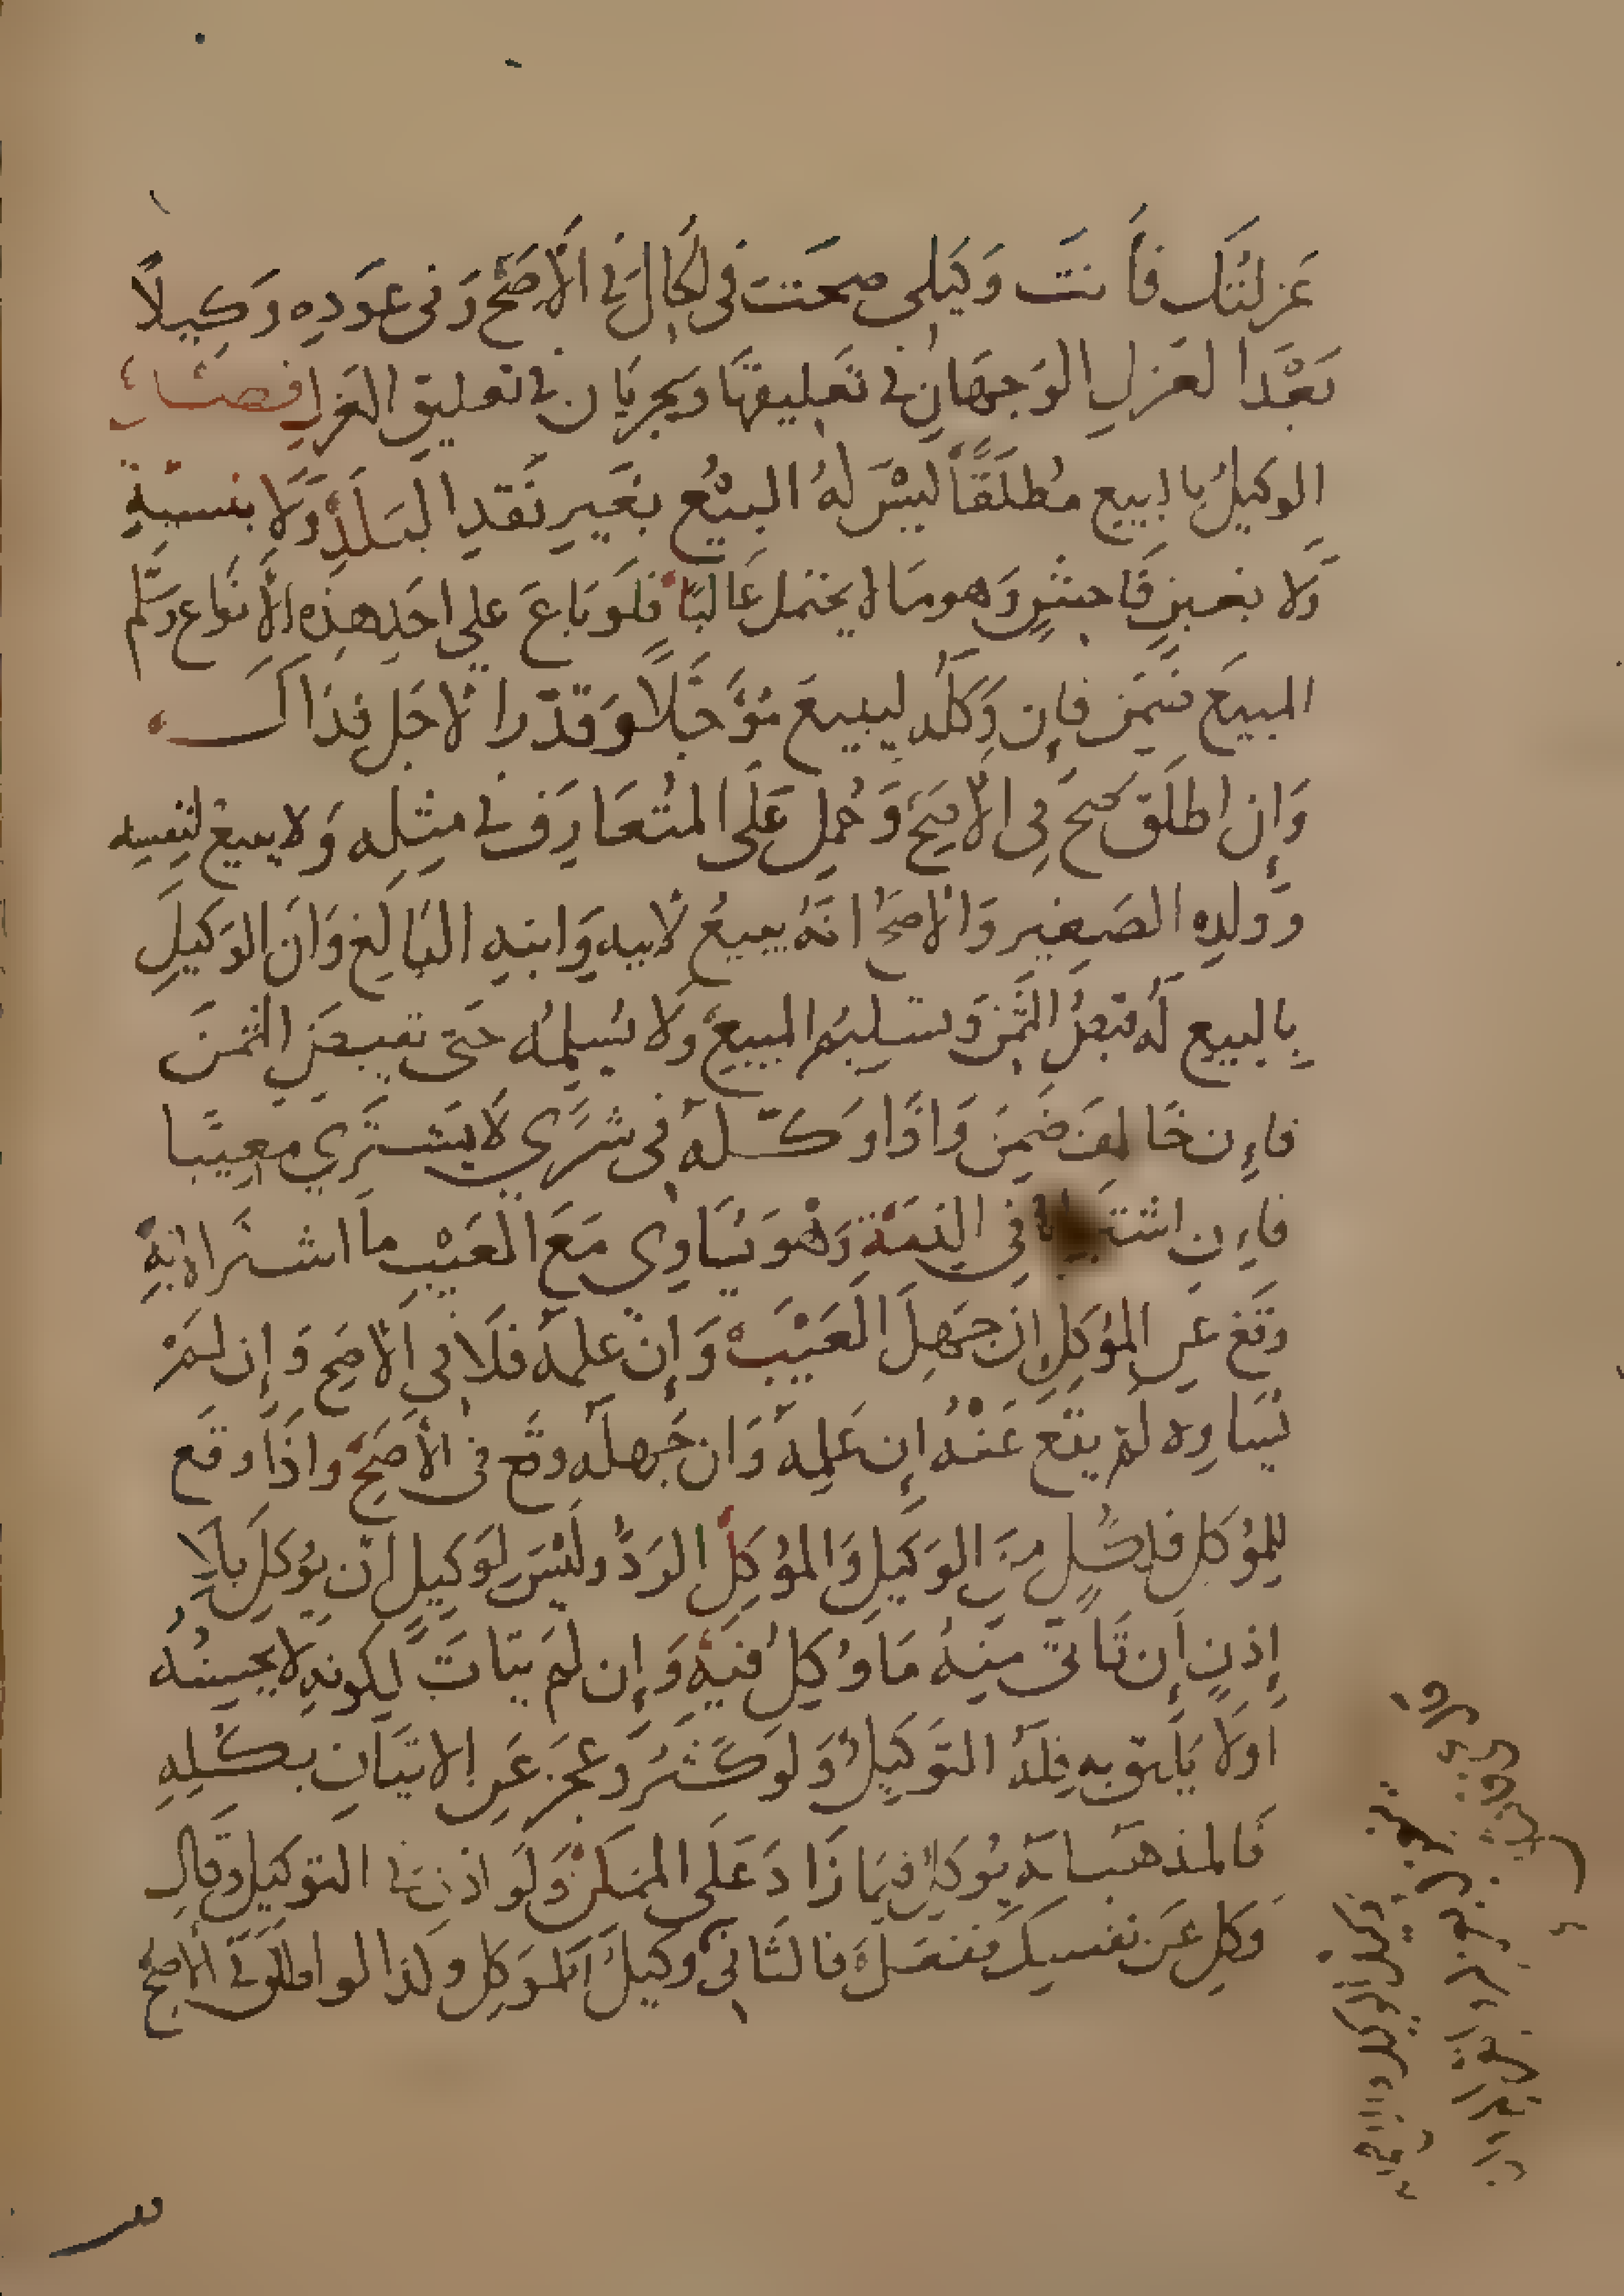 عَزلتُك فأنتَ وَكيلي صحت في الحال في الأصح وفي عوده وكيلاً
بَعْد العَزلِ الوجهان في تعليقها ويجريان في تعليق العزل فصل
الوكيلُ بالبيع مُطلَقًا ليسَ لهُ البيعُ بغَيرِ نَقدِ البلدِ ولا بنسيئةٍ
ولا بغبنٍ فاحشٍ وهو ما لا يحتمل غالبًا فلو باعَ على احدِ هذِه الأنواع وسلم
المبيعَ ضمن فإن وكله ليبيعَ مؤجّلًا وقدّر الأجل فذاك
وَإن اطلَق صح في الأصح وحُمِل عَلَى المتعارَف في مثله ولا يبيعُ لنفسه
وولده الصغير والأصح انه يبيعُ لأبيه وابنه البالغ وان الوكيلَ
بالبيع له قبضُ الثمن وتسليمُ المبيع ولا يسلمُه حتى يقبضَ الثمنَ
فإن خالف ضمِنَ وَاذا وكّله في شرَي لا يشتري معيبًا
فإن اشتراه في الذمة وهو يساوي مَعَ العَيْب ما اشتراه به
وقع عن الموكل إن جهلَ العَيْبَ وَإن علمه فلا في الأصح وَإن لَمْ
يُسَاوه لم يقع عَنْهُ إن عَلِمَه وَان جَهلَه وقع في الأصح واذا وقع
للموكل فلكُلٍ منَ الوَكيلِ وَالموكِلِ الردُّ وليْسَ لوكيلٍ أن يوكل بلا
إذنٍ إن تأتى منهُ مَا وُكِلَ فيهِ وَإن لم يتأتَ لكونهِ لا يحسنُه
اولا يَليق به فله التوكيلُ ولو كثُر وعجز عن الاتيان بكلِهِ
فالمذهب انه يوكل فيما زادَ على الممكن ولو اذن في التوكيل وقال
وكل عَن نفسِكَ ففعَل فالثاني وكيلُ الموكل وكذا لو اطلق في الأصح